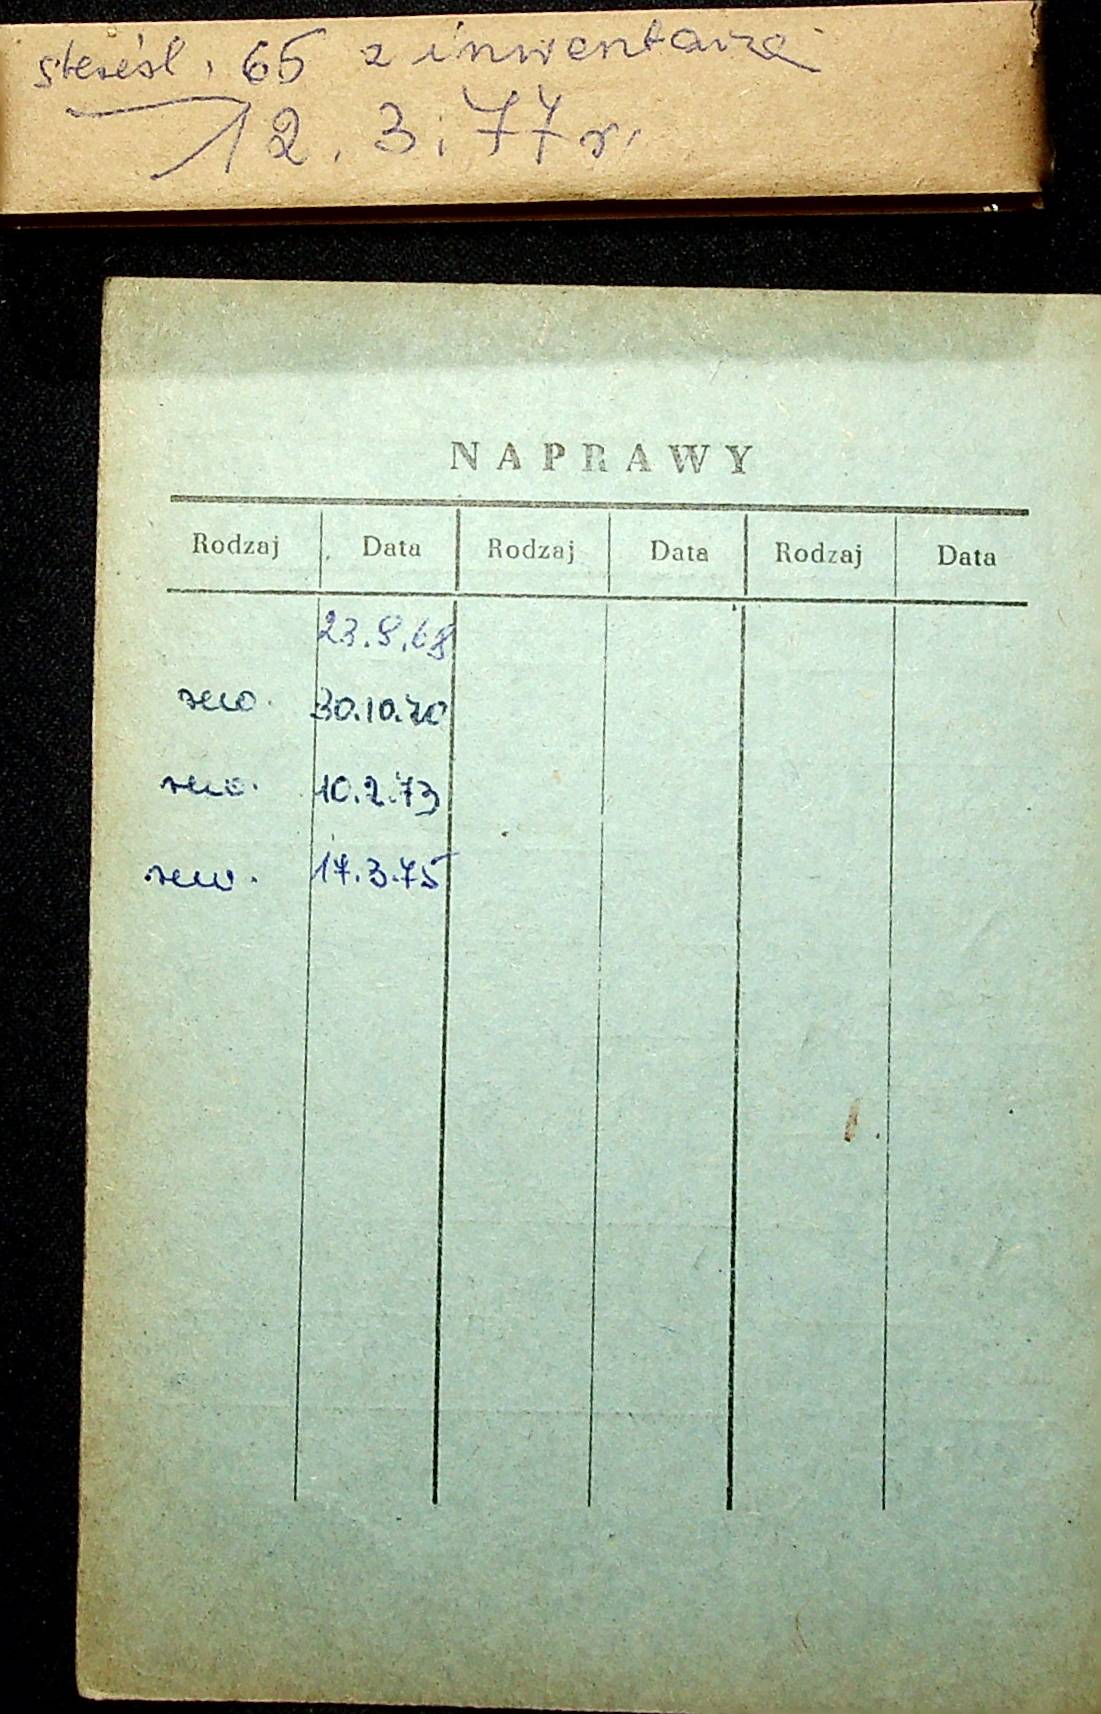 skreśl. 65 z inwentarza
12.3.77 r.
NAPRAWY
Rodzaj Data Rodzaj Data Rodzaj Data
23.8.68
30.10.70
10.2.73
17.3.75